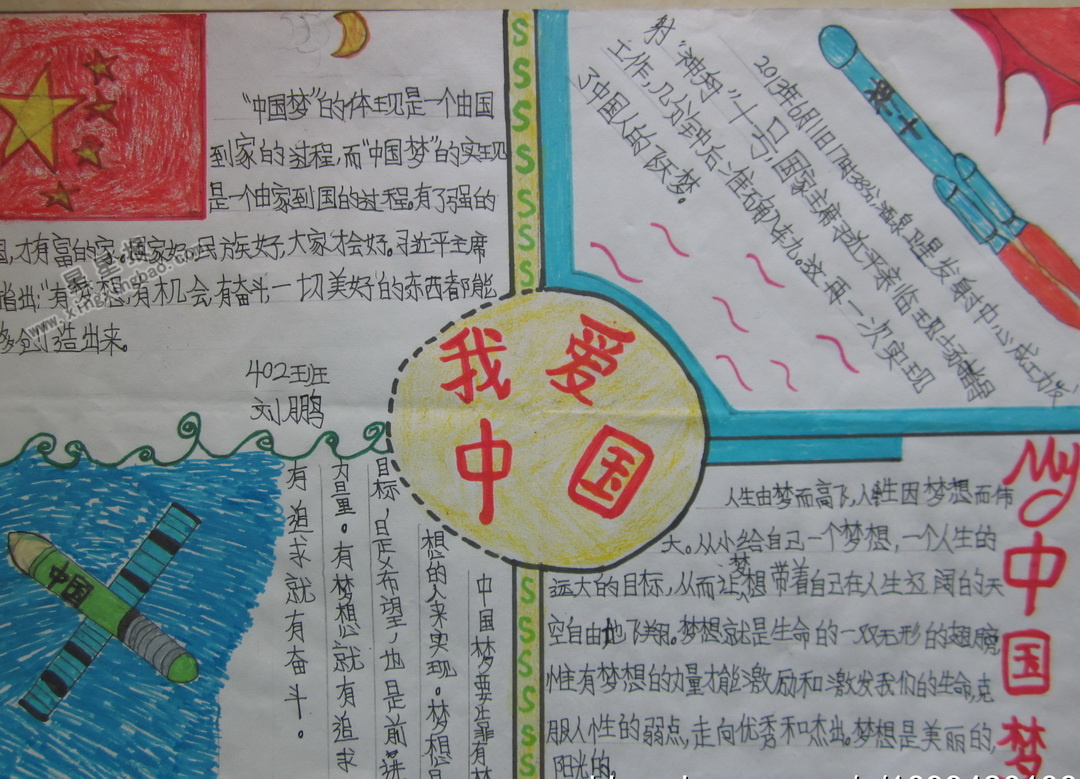 “中国梦”的体现是一个由国
到家的过程,而“中国梦”的实现
是一个由家到国的过程。有了强的
国,才有富的家。国家好,民族好,大家才会好。习近平主席
指出:“有梦想,有机会,有奋斗,一切美好的东西都能
够创造出来。
402班
刘鹏
我爱
中国
2013年6月11日17时38分,酒泉卫星发射中心成功发
射“神舟”十号,国家主席习近平亲临现场
工作,几分钟后,准确入轨。这再一次实现
了中国人的飞天梦。
神十
中国
中国梦要靠有梦
想的人来实现。梦想是
目标,是希望,也是前进
力量。有梦想就有追求
有追求就有奋斗。
My
中国梦
人生由梦而高飞,人性因梦想而伟
大。从小给自己一个梦想,一个人生的
远大的目标,从而让梦想带着自己在人生辽阔的天
空自由地飞翔。梦想就是生命的一双无形的翅膀
惟有梦想的力量才能激励和激发我们的生命,克
服人性的弱点,走向优秀和杰出。梦想是美丽的,
阳光的,
S S S S S S
S S S S S
星星报
www.xingxingbao.com